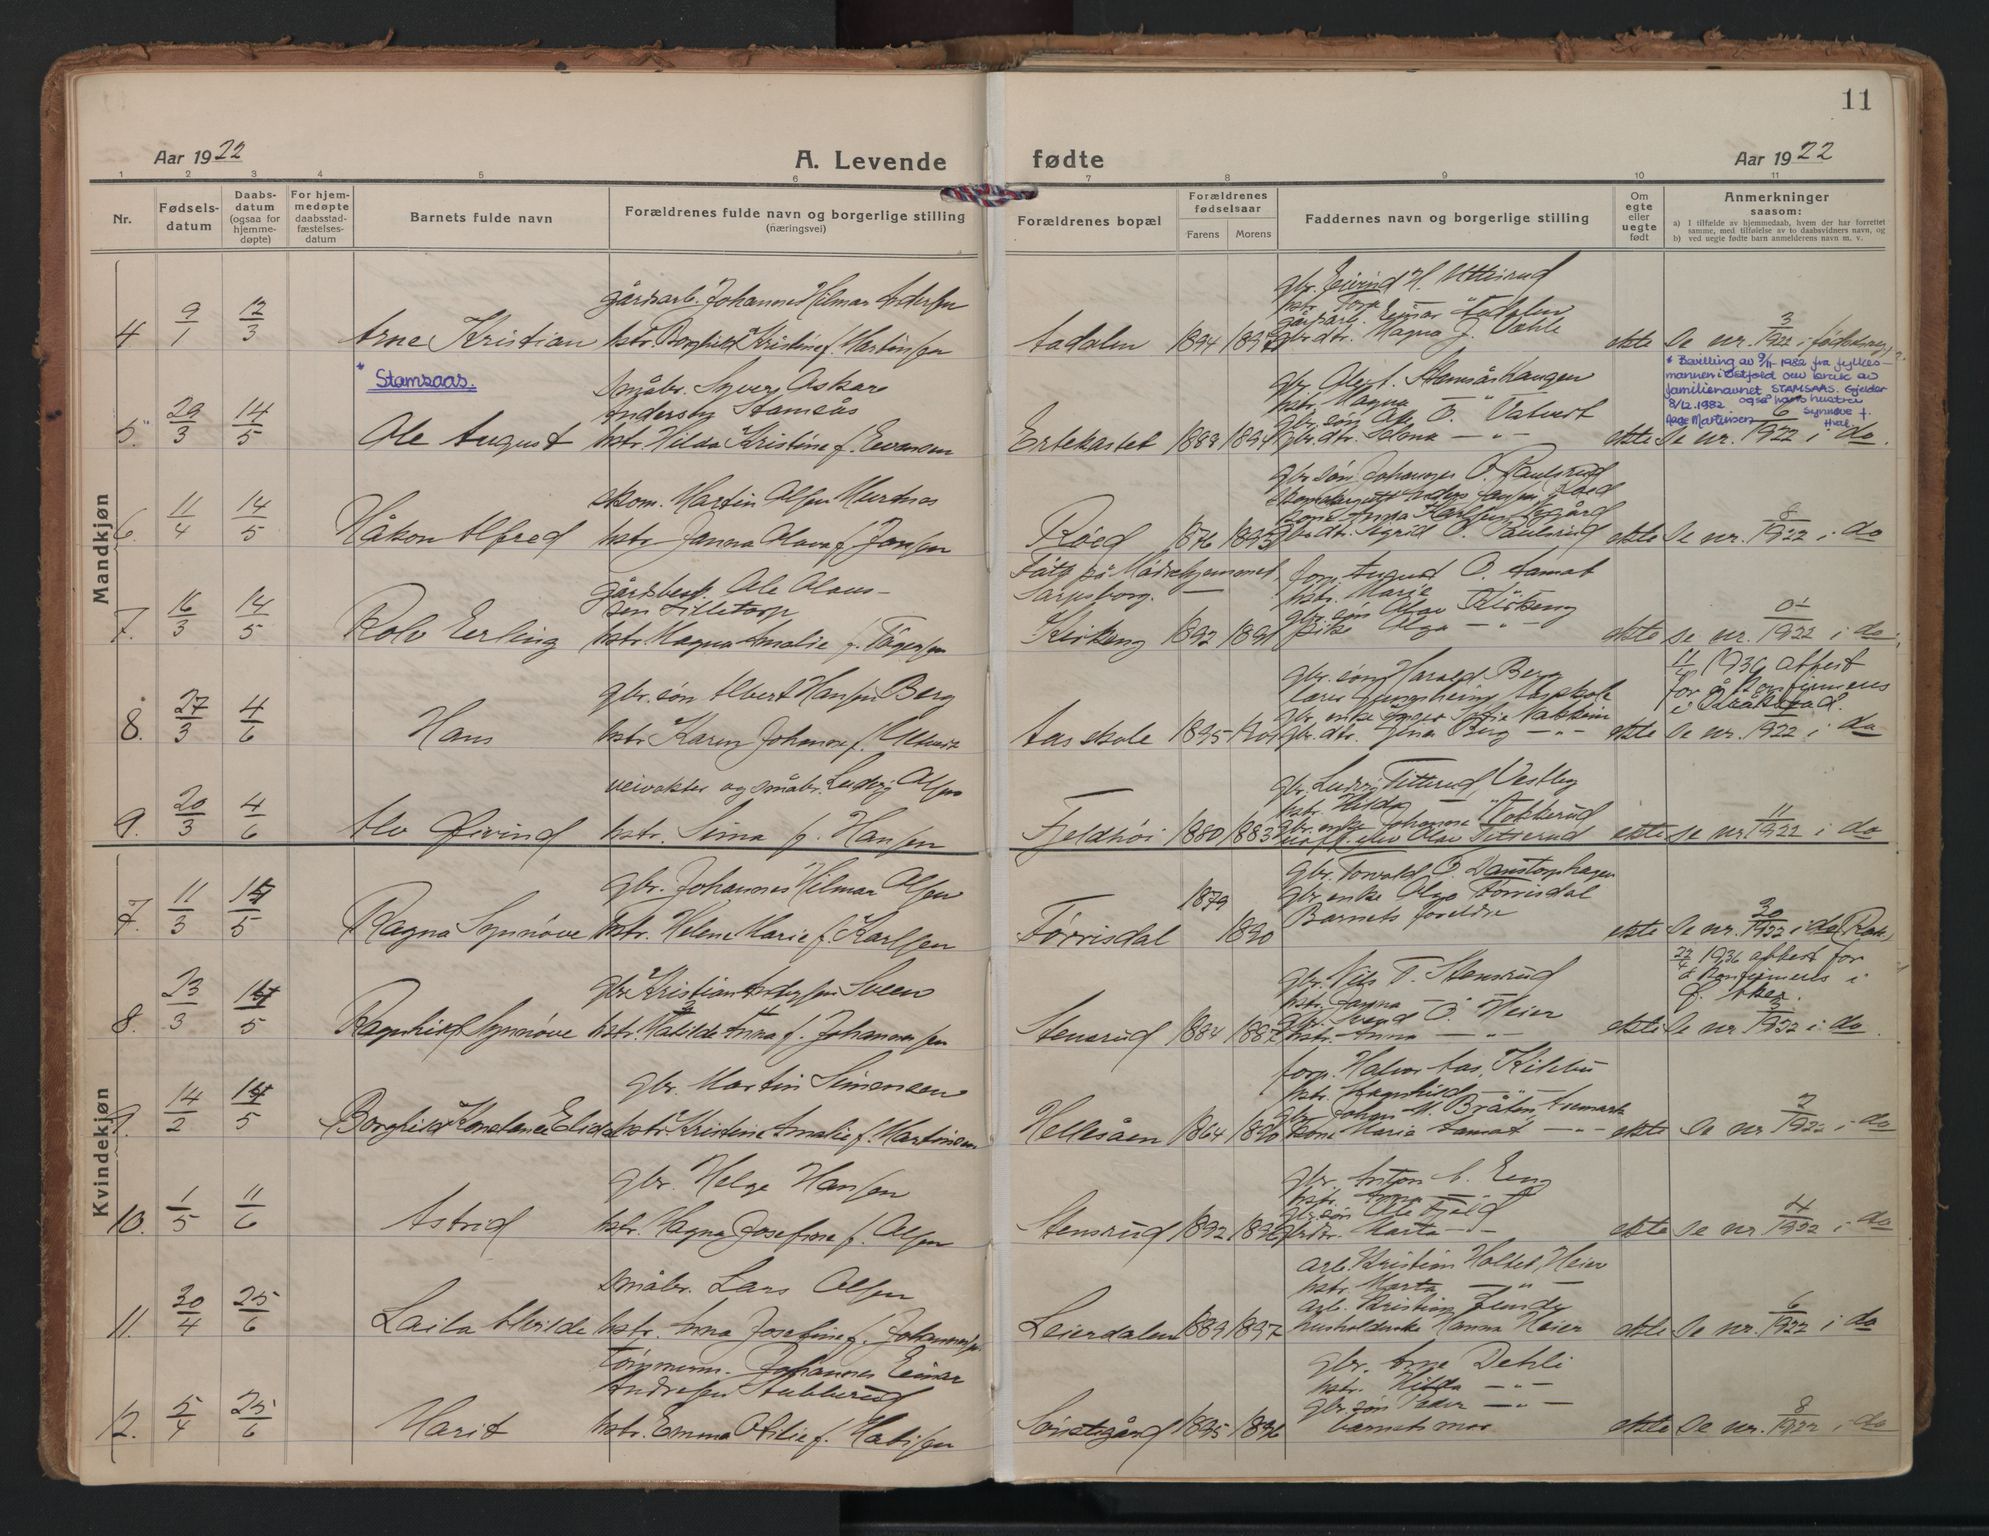 11
Aar 1922
A. Levende fødte
Aar 1922
1 2 3 4 5 6 7 8 9 10 11
Nr.
Fødsels-
datum
Daabs-
datum
(ogsaa for
hjemme-
døpte)
For hjem-
medøpte
daabsstad-
fæstelses-
datum
Barnets fulde navn
Forældrenes fulde navn og borgerlige stilling
(næringsvei)
Forældrenes bopæl
Forældrenes
fødselsaar
Farens Morens
Faddernes navn og borgerlige stilling
Om
egte
eller
uegte
født
Anmerkninger
saasom:
a) I tilfælde av hjemmedaab, hvem der har forrettet
samme, med tilføielse av to daabsvidners navn, og
b) ved uegte fødte barn anmelderens navn m. v.
Mandkjøn
4 9/1 12/3 Arne Kristian
gårdsarb. Johannes Hilmar Andersen
hstr. Borghild Kristine f. Martinsen
Aadalen 1894
gbr. Eivind H.
hstr.
gårdarb. Einar Aadalen
gbr. dtr. Magna J.
ekte Se nr. 3/1922 i
* Stamsaas.
5. 29/3 14/5 Ole August
småbr. Syver Oskar
Andersen Stamsås
hstr. Hilda Kristine f. Evensen
Ertekastet 1894
gbr. Olaf Stamsåshaugen
hstr. Magna — " —
gbr. søn Ole O.
gbr. dtr. — " —
ekte Se nr. 6/1922 i do.
* Bevilling av 9/11 1982 fra fylkes-
mannen i Østfold om bruk av
familienavnet STAMSAAS. Gjelder
også hans hustru
8/12.1982 Synnøve f.
Aage Martinsen
6. 11/4 14/5 Håkon Alfred
skom. Martin Olsen
hstr. Janna Olava f. Jonsen
Røed 1876
gbr. søn Johannes O. Paulsrud
gbr. dtr. Sigrid O. Paulsrud
ekte Se nr. 8/1922 i do
7. 16/3 14/5 Rolv Erling
gårdbest. Ole Olaus-
sen Lilletorp
hstr. Magna Amalie f.
Født på Mødrehjemmet,
Sarpsborg. —
Kirkeng 1892
forp. August O.
hstr. Marie
gbr. søn Olav Kirkeng
pike Olga — " —
ekte se nr. 1922 i do
8. 27/3 4/6 Hans
gbr. søn Albert Hansen Berg
hstr. Karen Johanne f.
Aaskole 1895
gbr. søn Harald Berg
lærer
gbr. enke
gbr. dtr. Berg — " —
ekte Se nr. 1922 i do
1936 attest
for å konfirmeres
9. 20/3 4/6 Alv Øivind
veivokter og småbr. Ludvig Olsen
hstr. Sina f. Hansen
Fjeldhøi 1880 1883
gbr. Ludvig Titterud, Vestby
hstr. Hilda — " —
gbr. enke Johanne
elev Olav Titterud
ekte se nr. 11/1922 i do
Kvindekjøn
7. 11/3 14/5 Ragna Synnøve
gbr. Johannes Hilmar Olsen
hstr. Helene Marie f. Karlsen
Tørrisdal 1879 1890
gbr. Torvald O. Danstorphagen
gbr. enke Olga Tørrisdal
Barnets foreldre
ekte Se nr. 30/1922 i do
8. 23/3 14/5 Ragnhild Synnøve
gbr. Kristian Andersen Sveen
hstr. Matilde Anna f. Johannessen
Stensrud 1884 1887
gbr. Nils T. Stensrud
hstr. Ragna — " —
gbr. Svend O. Heier
hstr. Anna — " —
ekte Se nr. 1922 i do
27/4 1936 attest for
å konfirmeres i
Ø. Aker.
9. 14/2 14/5 Borghild Konstance Elida
gbr. Martin Simensen
hstr. Kristine Amalie f. Martinsen
Hellesåen 1864 1890
forp. Halvor Aas, Kilebu
hstr. Ragnhild — " —
gbr. Johan M. Bråten, Aremark
kone Marie — " —
ekte Se nr 2/1922 i do
10. 1/5 11/6 Astrid
gbr. Helge Hansen
hstr. Magna Josefine f. Olsen
Stensrud 1892 1896
gbr. Anton C. Eng
hstr. Anna — " —
gbr. søn Ole Fjeld
gbr. dtr. Marta — " —
ekte Se nr. 4/1922 i do
11. 30/4 25/6 Laila Alvilde
småbr. Lars Olsen
hstr. Anna Josefine f. Johannessen
Leierdalen 1889 1897
arb. Kristian Holtet, Heier
hstr. Marta — " —
arb. Kristian Lund
husholderske Hanna Heier
ekte Se nr. 6/1922 i do
12. 5/4 25/6 Marit
Tømmerm. Johannes Einar
Andresen Stubberud
hstr. Emma Otilie f. Mathisen
1895 1896
gbr. Arne Dehli
hstr. Hilda — " —
gbr. søn Peder — " —
barnets mor
ekte Se nr. 8/1922 i do